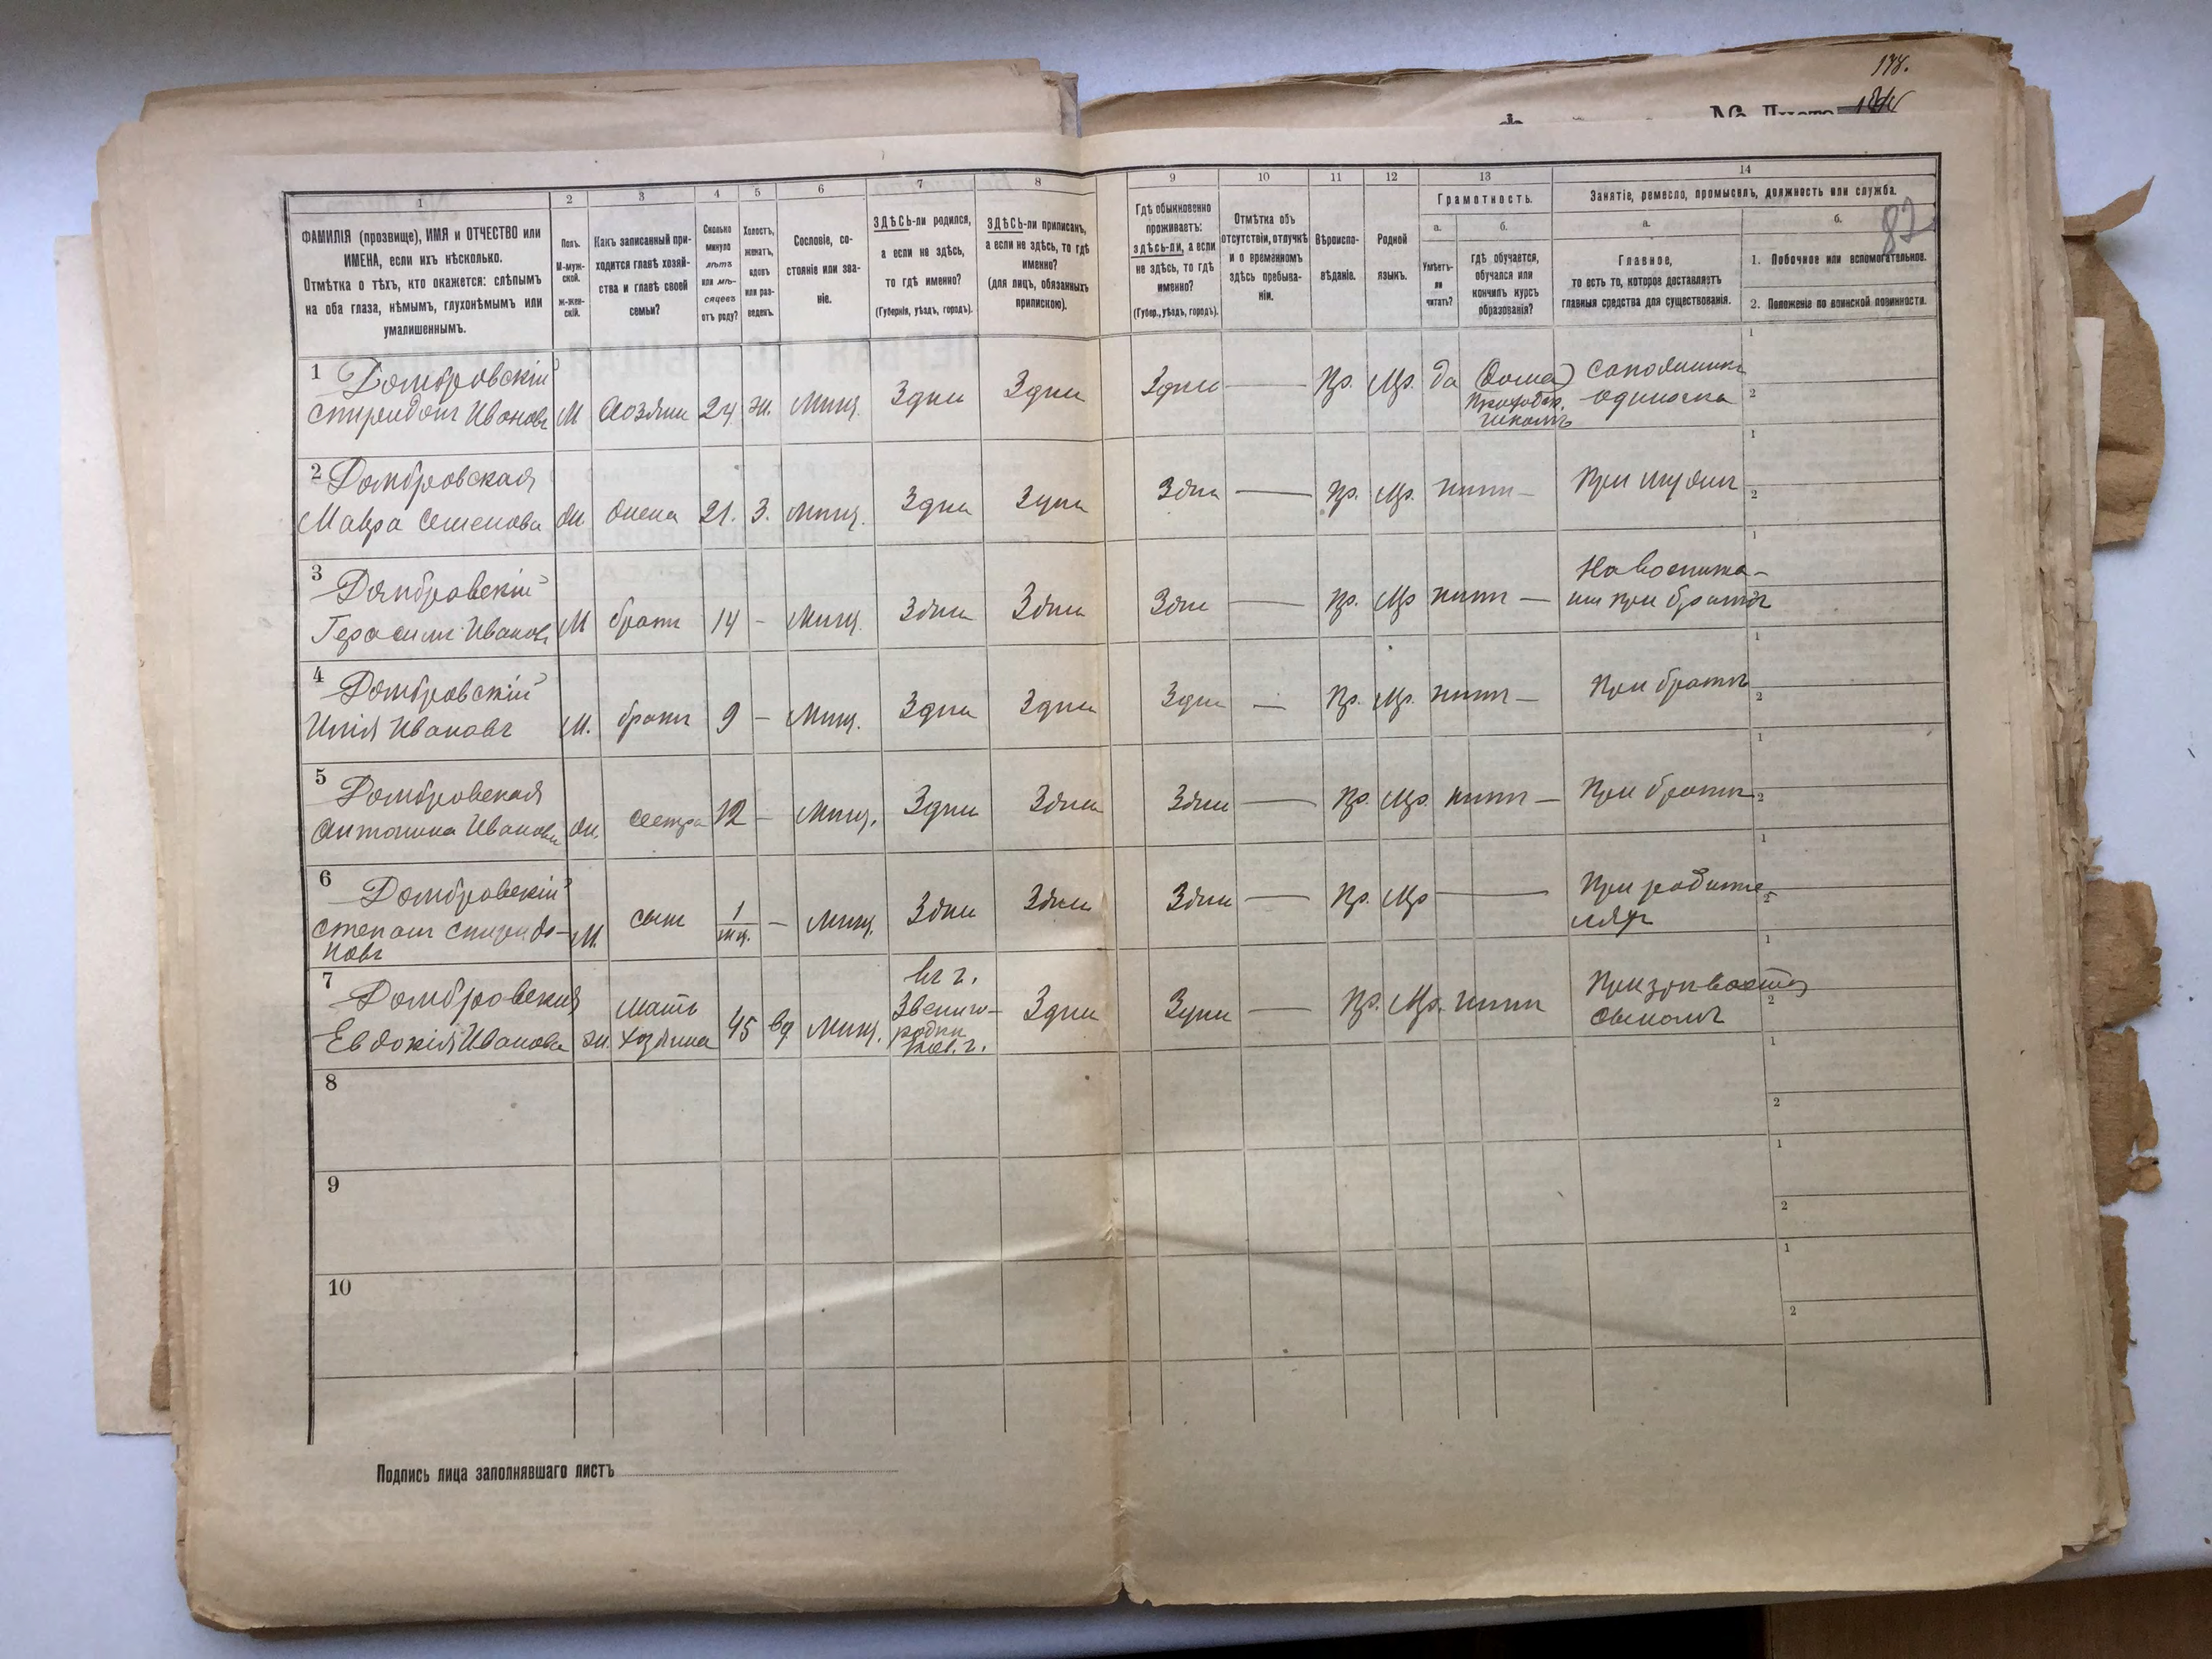 178.
№ Листа
82
1
2
3
4
5
6
7
8
9
10
11
12
13
14
ФАМИЛІЯ (прозвище), ИМЯ и ОТЧЕСТВО или
ИМЕНА, если ихъ нѣсколько.
Отмѣтка о тѣхъ, кто окажется: слѣпымъ
на оба глаза, нѣмымъ, глухонѣмымъ или
умалишеннымъ.
Полъ.
М-муж-
ской.
ж-жен-
скій.
Какъ записанный при-
ходится главѣ хозяй-
ства и главѣ своей
семьи?
Сколько
минуло
лѣтъ
или мѣ-
сяцевъ
отъ роду?
Холостъ,
женатъ,
вдовъ
или раз-
веденъ.
Сословіе, со-
стояніе или зва-
ніе.
ЗДѢСЬ-ли родился,
а если не здѣсь,
то гдѣ именно?
(Губернія, уѣздъ, городъ).
ЗДѢСЬ-ли приписанъ,
а если не здѣсь, то гдѣ
именно?
(для лицъ, обязанныхъ
припискою).
Гдѣ обыкновенно
проживаетъ:
здѣсь-ли, а если
не здѣсь, то гдѣ
именно?
(Губер., уѣздъ, городъ).
Отмѣтка объ
отсутствіи, отлучкѣ
и о временномъ
здѣсь пребыва-
ніи.
Вѣроиспо-
вѣданіе.
Родной
языкъ.
Грамотность.
а.
Умѣетъ-
ли
читать?
б.
гдѣ обучается,
обучался или
кончилъ курсъ
образованія?
Занятіе, ремесло, промыселъ, должность или служба.
а.
Главное,
то есть то, которое доставляетъ
главныя средства для существованія.
б.
1. Побочное или вспомогательное.
2. Положеніе по воинской повинности.
1 Домбровскій
Спиридонъ Ивановъ М Хозяин 24 ж. Мѣщ. Здѣи Здѣи Здѣи — Пр. Мр. да (дома) Сапожникъ
одиночка
2 Домбровская
Мавра Семенова ж. жена 21. З. Мѣщ. Здѣи Здѣи Здѣи — Пр. Мр. нѣтъ — При мужѣ
3 Домбровскій
Герасимъ Ивановъ М братъ 14 - Мѣщ. Здѣи Здѣи Здѣи — Пр. Мр нѣтъ — На воспита-
ніи при братѣ
4 Домбровскій
Илія Ивановъ М. братъ 9 — Мѣщ. Здѣи Здѣи Здѣи — Пр. Мр. нѣтъ — При братѣ
5 Домбровская
Антонина Иванова ж. сестра 12 — Мѣщ. Здѣи Здѣи Здѣи — Пр. Мр. нѣтъ — При братѣ
6 Домбровскій
Степанъ Спиридо-
новъ М. сынъ 1 мц. — Мѣщ. Здѣи Здѣи Здѣи — Пр. Мр — При родите-
ляхъ
7 Домбровская
Евдокія Иванова ж. мать хозяина 45 вд. Мѣщ. въ г.
Звениго-
родки
Кіев. г. Здѣи Здѣи — Пр. Мр. нѣтъ
сыномъ
8
9
10
Подпись лица заполнявшаго листъ